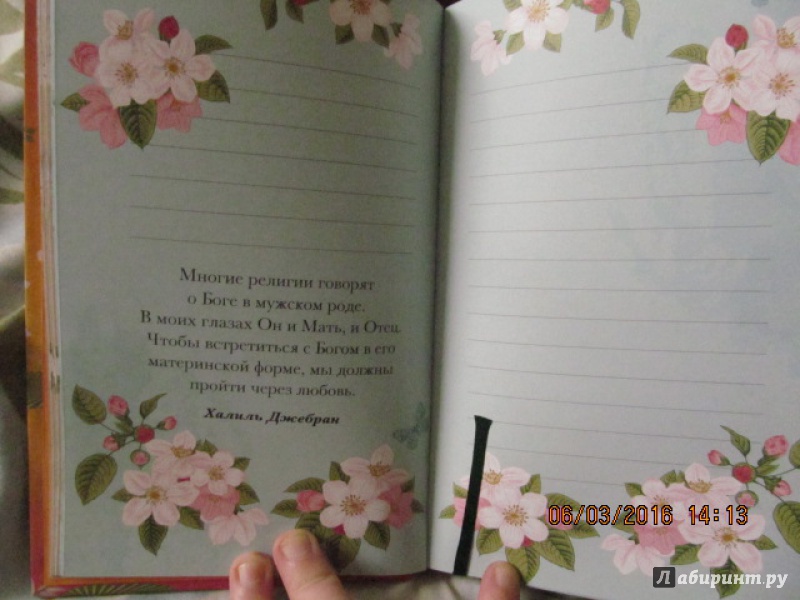 Многие религии говорят
о Боге в мужском роде.
В моих глазах Он и Мать, и Отец.
Чтобы встретиться с Богом в его
материнской форме, мы должны
пройти через любовь.
Халиль Джебран
06/03/2016 14:13
Лабиринт.ру